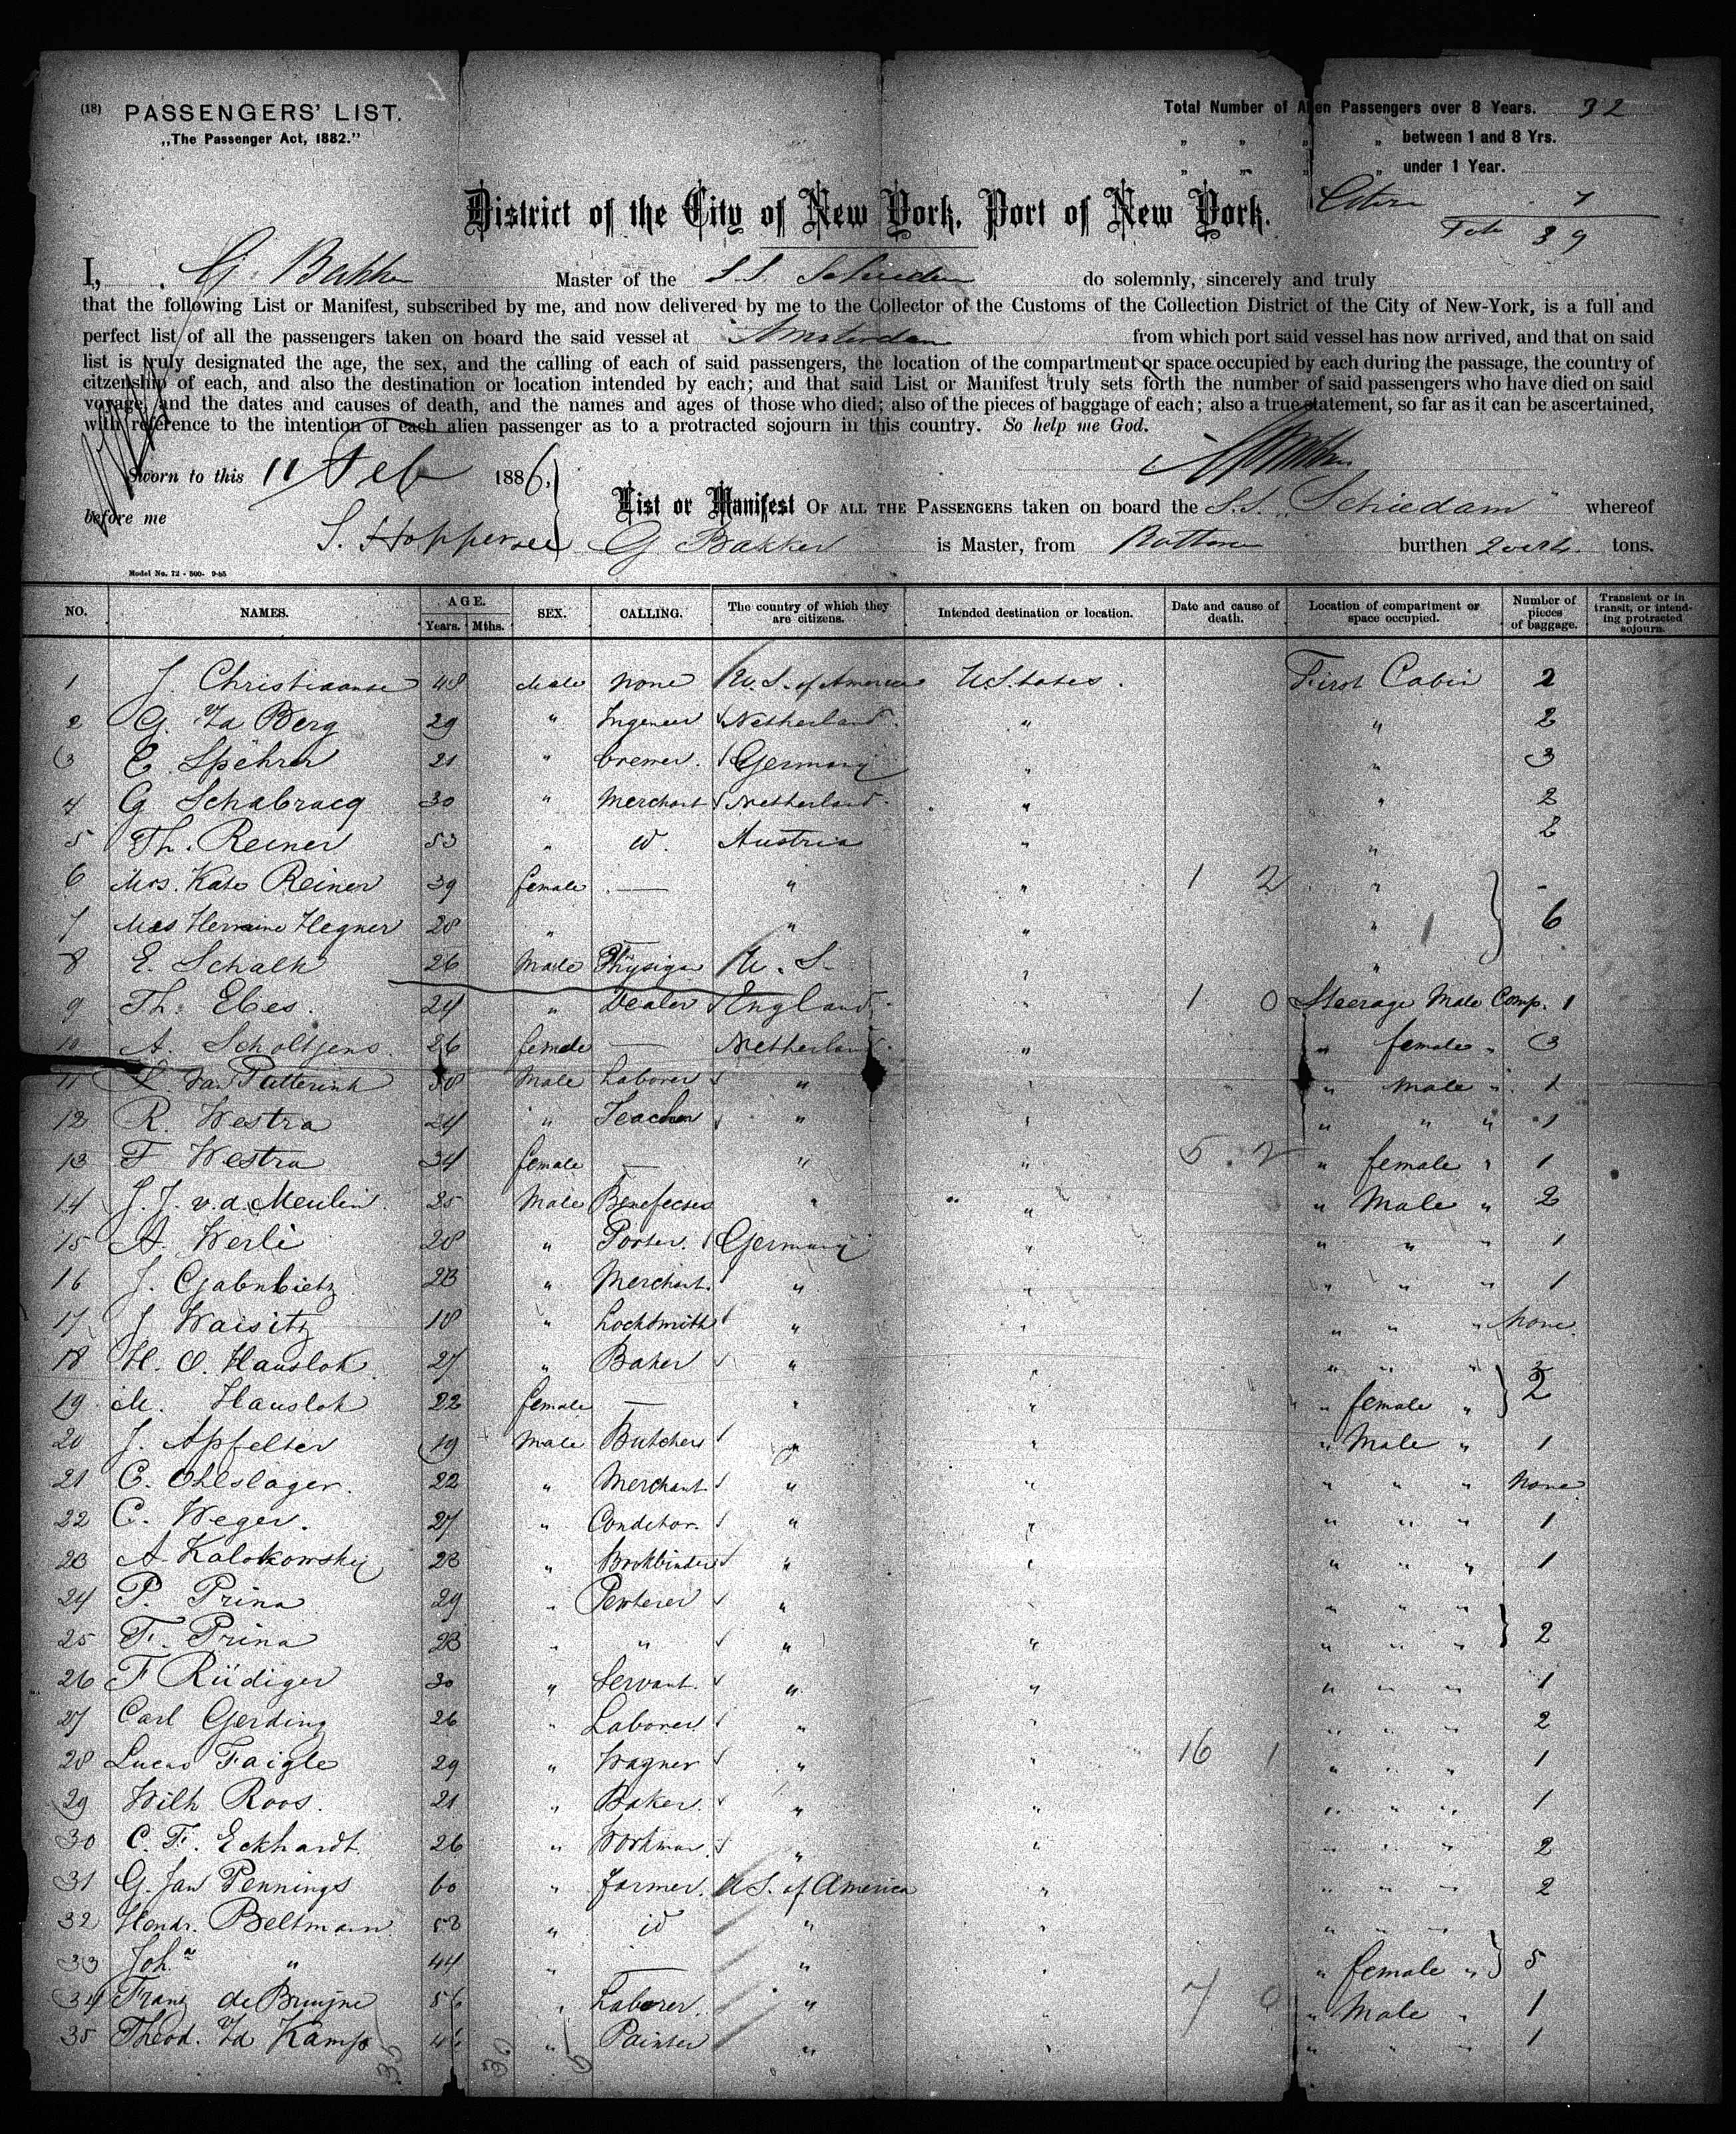 (18) PASSENGERS' LIST.
„The Passenger Act, 1882."
Total Number of Alien Passengers over 8 Years. 32
„ „ „ „ between 1 and 8 Yrs.
„ „ „ „ under 1 Year.
7
39
District of the City of New York, Port of New York.
I, G. Bakker Master of the S.S. Schiedam do solemnly, sincerely and truly
that the following List or Manifest, subscribed by me, and now delivered by me to the Collector of the Customs of the Collection District of the City of New-York, is a full and
perfect list of all the passengers taken on board the said vessel at Amsterdam from which port said vessel has now arrived, and that on said
list is truly designated the age, the sex, and the calling of each of said passengers, the location of the compartment or space occupied by each during the passage, the country of
citzenship of each, and also the destination or location intended by each; and that said List or Manifest truly sets forth the number of said passengers who have died on said
voyage, and the dates and causes of death, and the names and ages of those who died; also of the pieces of baggage of each; also a true statement, so far as it can be ascertained,
with reference to the intention of each alien passenger as to a protracted sojourn in this country. So help me God.
Sworn to this 11 Feb 1886,
before me
List or Manifest OF ALL THE PASSENGERS taken on board the S.S. „Schiedam" whereof
G Bakker is Master, from burthen tons.
Model No. 72 - 500- 9-85
NO. NAMES. AGE. Years. Mths. SEX. CALLING. The country of which they are citizens. Intended destination or location. Date and cause of death. Location of compartment or space occupied. Number of pieces of baggage. Transient or in transit, or intending protracted sojourn.
1 J. Christiaanse 48 Male none U.S. of America U.States. First Cabin 2
2 G. v/d Berg 29 " Ingeneer Netherland. " " 2
3 E. Spehrer 21 " Germany " " 3
4 G Schabracq 30 " Merchant Netherland. " " 2
5 Th. Reiner 53 " id. Austria " " 2
6 Mrs. Kate Reiner 39 female — " " 1 2 " -
7 Hermine Hegner 28 " " " " 6
8 E. Schalk 26 Male U.S. " "
9 Th. Ebes. 24 " Dealer England. " 1 0 Steerage Male Comp. 1
10 A. Scholtjens. 26 female — Netherland. " " female " 3
11 van Putterink 38 Male Laborer " " " Male " 1
12 R. Westra 24 " Teacher " " " " " 1
13 F Westra 34 female — " " 5 2 " female " 1
14 J. J. v.d. Meulen. 25 Male " " " Male " 2
15 A. Werli 28 " Porter. Germany " " " " 1
16 J. 23 " Merchant. " " " " " 1
17 J Waisitz 18 " Locksmith " " " " " None.
18 H. O. Hauslok. 27 " Baker " " " " "
19 M. Hauslok 22 female — " " " female " 2
20 J. Apfelter 19 Male Butcher " " " Male " 1
21 C. Ohlslager. 22 " Merchant " " " " " None.
22 C. Weger. 27 " Conditor. " " " " " 1
23 A Kalokowsky 23 " Bookbinder " " " " " 1
24 P. Prina 29 " Pewterer " " " "
25 F. Prina 23 " " " " " " " 2
26 F Rüdiger 30 " Servant. " " " " " 1
27 Carl Gerding 26 " Laborer " " " " 2
28 Lucas Faigle 29 " Wagner " " 16 1 " " " 1
29 Wilh Roos. 21 " Baker. " " " " " 1
30 C. F. Eckhardt. 26 " Workman. " " " " " 2
31 G. Jan Pennings 60 " farmer. U.S. of America " " " " 2
32 Hendr. Beltman 53 " id " " " " "
33 Joh.a " 44 " — " " " female " 5
34 Franz de Bruijne 56 " Laborer. " " 7 0 " Male " 1
35 Theod. v/d Kamp " Painter " " " " 1
35 30 5